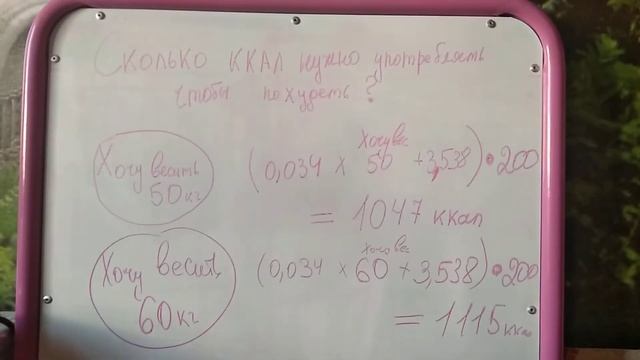 Сколько ккал нужно употреблять
чтобы похудеть?
Хочу весить
50 кг
хочу вес
(0,034 х 50 + 3,538) • 200
= 1047 ккал
Хочу весить
60 кг
хочу вес
(0,034 х 60 + 3,538) • 200
= 1115 ккал